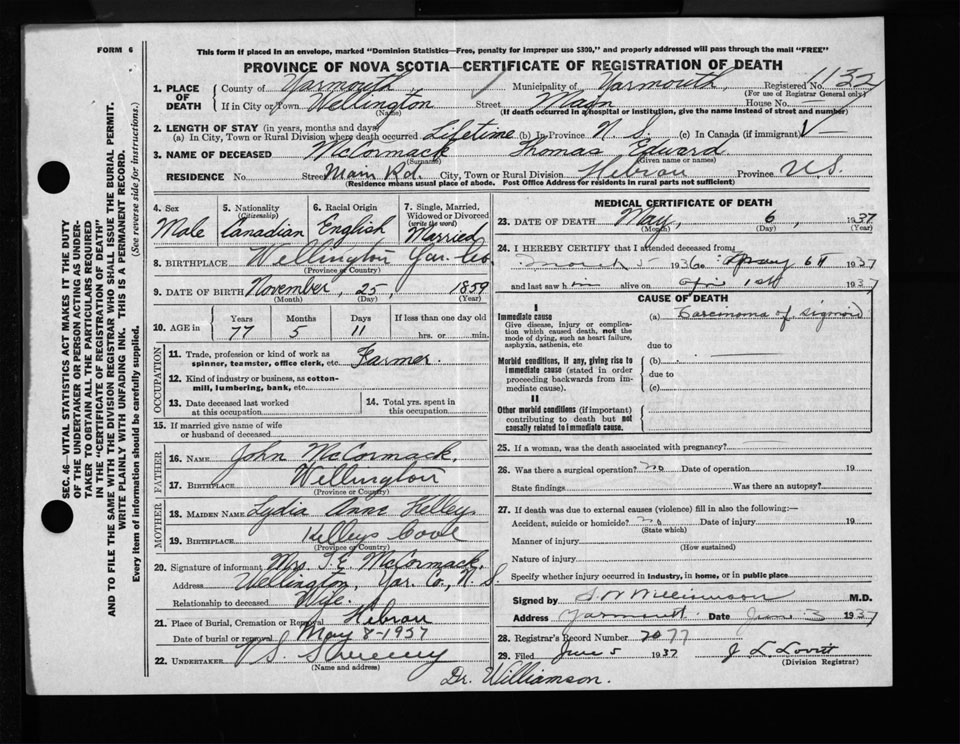 FORM 6
This form if placed in an envelope, marked "Dominion Statistics—Free, penalty for improper use $300," and properly addressed will pass through the mail "FREE"
PROVINCE OF NOVA SCOTIA—CERTIFICATE OF REGISTRATION OF DEATH
1. PLACE OF DEATH
County of Yarmouth Municipality of Yarmouth, Registered No. 1132
(For use of Registrar General only)
If in City or Town Wellington Street Main House No. —
(Name) (If death occurred in a hospital or institution, give the name instead of street and number)
2. LENGTH OF STAY (in years, months and days)
(a) In City, Town or Rural Division where death occurred Lifetime (b) In Province N. S. (c) In Canada (if immigrant)
3. NAME OF DECEASED McCormack Thomas Edward.
(Surname) (Given name or names)
RESIDENCE No. Street Main Rd. City, Town or Rural Division Hebron Province N.S.
(Residence means usual place of abode. Post Office Address for residents in rural parts not sufficient)
4. Sex Male
5. Nationality (Citizenship) Canadian
6. Racial Origin English
7. Single, Married, Widowed or Divorced (write the word) Married
8. BIRTHPLACE Wellington Yar. Co.
(Province or Country)
9. DATE OF BIRTH November, 25, 1859
(Month) (Day) (Year)
10. AGE in Years Months Days If less than one day old
77 5 11 hrs. or min.
OCCUPATION
11. Trade, profession or kind of work as spinner, teamster, office clerk, etc. Farmer.
12. Kind of industry or business, as cotton-mill, lumbering, bank, etc.
13. Date deceased last worked at this occupation
14. Total yrs. spent in this occupation
15. If married give name of wife or husband of deceased
FATHER
16. NAME John McCormack,
17. BIRTHPLACE Wellington
(Province or Country)
MOTHER
18. MAIDEN NAME Lydia Anne Kelley
19. BIRTHPLACE Kelleys Cove
(Province or Country)
20. Signature of informant Mrs. T. E. McCormack,
Address Wellington, Yar. Co, N. S.
Relationship to deceased Wife.
21. Place of Burial, Cremation or Removal Hebron
Date of burial or removal May 8 - 1937
22. UNDERTAKER V. S. Sweeny
(Name and address)
Dr. Williamson.
MEDICAL CERTIFICATE OF DEATH
23. DATE OF DEATH May, 6 1937
(Month) (Day) (Year)
24. I HEREBY CERTIFY that I attended deceased from
March 5 1936 to May 6th 1937
and last saw him alive on Apr 1st 1937
CAUSE OF DEATH
I
Immediate cause
Give disease, injury or complication which caused death, not the mode of dying, such as heart failure, asphyxia, asthenia, etc
(a) Carcinoma of sigmoid
due to
Morbid conditions, if any, giving rise to immediate cause (stated in order proceeding backwards from immediate cause).
(b)
due to
(c)
II
Other morbid conditions (if important) contributing to death but not causally related to immediate cause.
25. If a woman, was the death associated with pregnancy?
26. Was there a surgical operation? no Date of operation 19
State findings Was there an autopsy?
27. If death was due to external causes (violence) fill in also the following:—
Accident, suicide or homicide? no Date of injury 19
(State which)
Manner of injury
(How sustained)
Nature of injury
Specify whether injury occurred in industry, in home, or in public place
Signed by Williamson M.D.
Address Yarmouth Date June 3 1937
28. Registrar's Record Number 2077
29. Filed June 5 1937 J L Lovitt
(Division Registrar)
SEC. 46—VITAL STATISTICS ACT MAKES IT THE DUTY
OF THE UNDERTAKER OR PERSON ACTING AS UNDER-
TAKER TO OBTAIN ALL THE PARTICULARS REQUIRED
IN THE "CERTIFICATE OF REGISTRATION OF DEATH"
AND TO FILE THE SAME WITH THE DIVISION REGISTRAR WHO SHALL ISSUE THE BURIAL PERMIT.
WRITE PLAINLY WITH UNFADING INK. THIS IS A PERMANENT RECORD.
Every item of information should be carefully supplied. (See reverse side for instructions.)